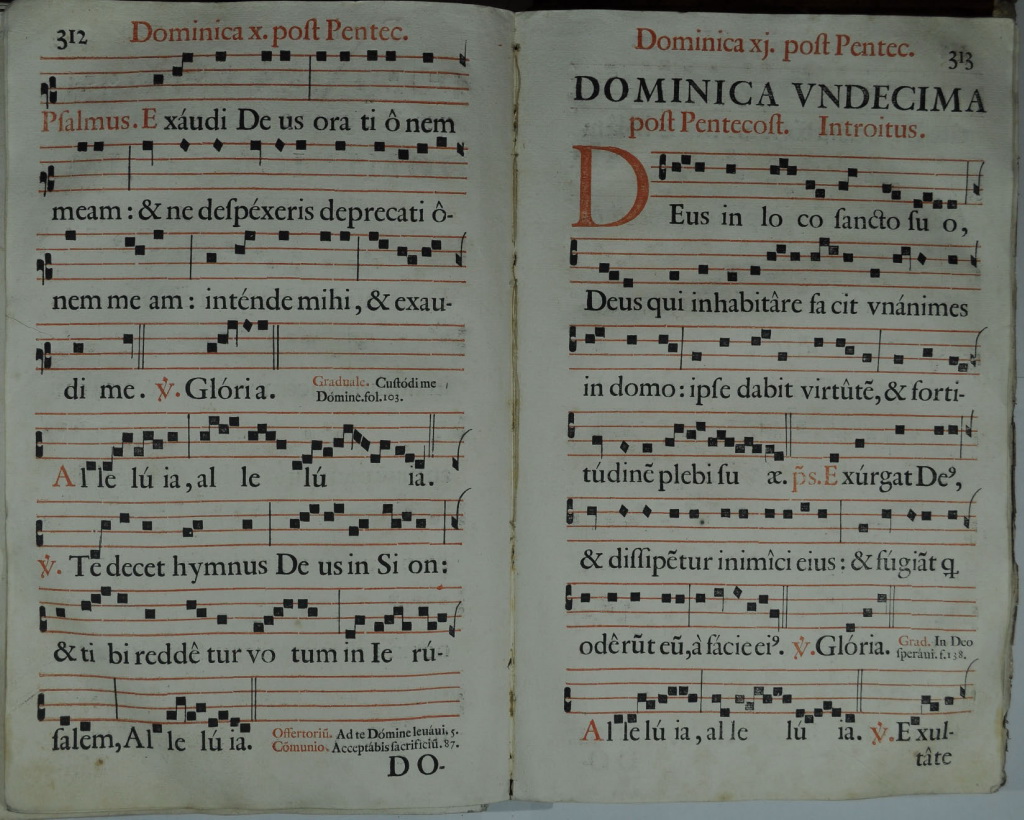 312 Dominica x. poſt Pentec.
Pſalmus. E xáudi De us ora ti ô nem
meam : & ne deſpéxeris deprecati ô-
nem me am : inténde mihi, & exau-
di me. ℣. Glória. Graduale. Cuſtódi me
Dómine. fol. 103.
Al le lú ia, al le lú ia.
℣. Te decet hymnus De us in Si on:
& ti bi reddê tur vo tum in Ie rú-
ſalem, Al le lú ia. Offertoriũ. Ad te Dómine leuáui. 5.
Cõmunio. Acceptábis ſacrificiũ. 87.
D O-
Dominica xj. poſt Pentec. 313
DOMINICA VNDECIMA
poſt Pentecoſt. Introitus.
DEus in lo co ſancto ſu o,
Deus qui inhabitâre fa cit vnánimes
in domo : ipſe dabit virtûtẽ, & forti-
túdinẽ plebi ſu æ. p̃s. E xúrgat Deꝰ,
& diſſipẽtur inimîci eius : & fúgiãt q
odêrũt eũ, à fácie eiꝰ. ℣. Glória. Grad. In Deo
ſperáui. f. 138.
Al le lú ia, al le lú ia. ℣. E xul-
tâte